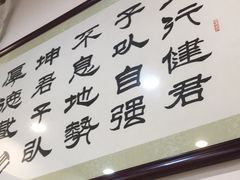 行健君
子以自强
不息地勢
坤君子以
厚德載